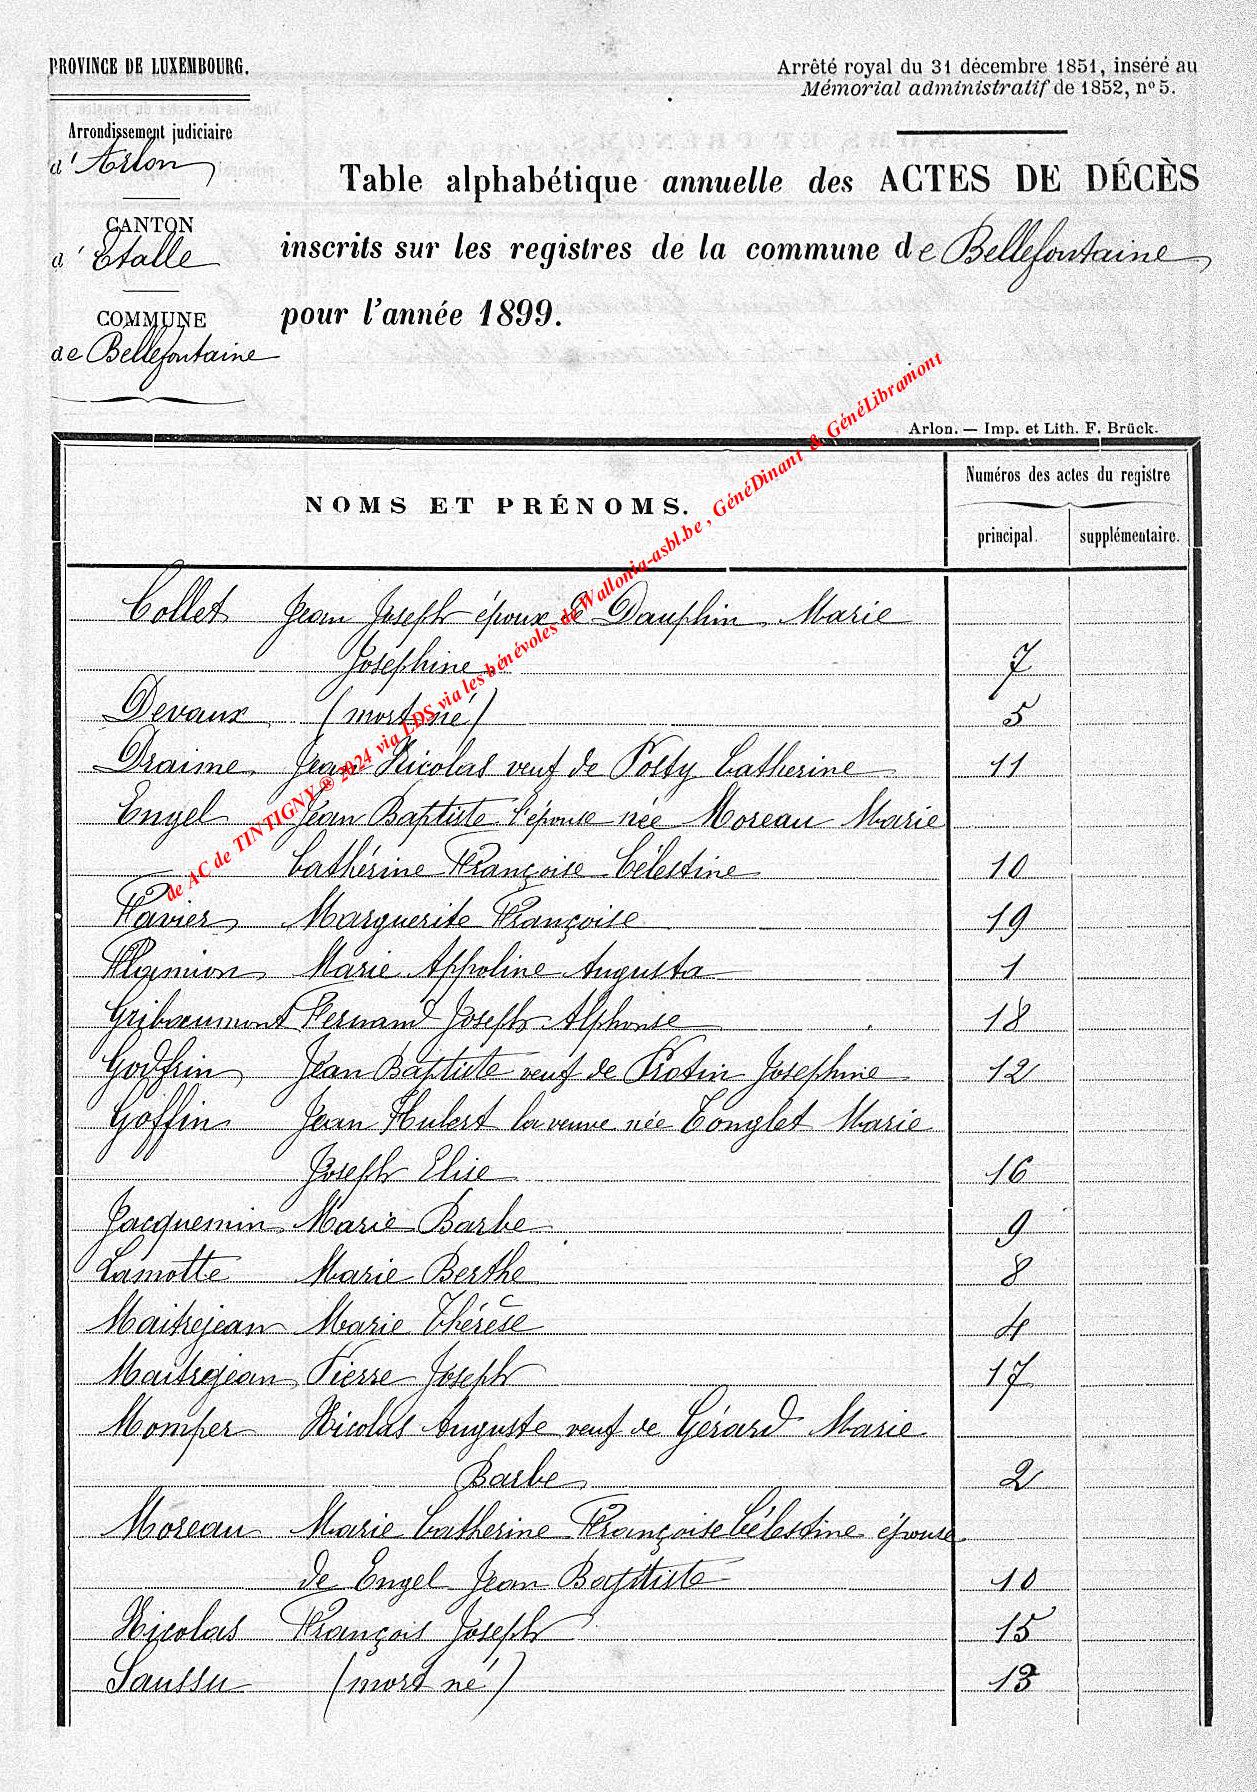 PROVINCE DE LUXEMBOURG.
Arrêté royal du 31 décembre 1851, inséré au
Mémorial administratif de 1852, nº 5.
Arrondissement judiciaire
d'Arlon
CANTON
d'Etalle
COMMUNE
de Bellefontaine
Table alphabétique annuelle des ACTES DE DÉCÈS
inscrits sur les registres de la commune de Bellefontaine
pour l'année 1899.
Arlon. — Imp. et Lith. F. Brück.
de AC de TINTIGNY ® 2024 via LDS via les bénévoles de Wallonia-asbl.be , GénéDinant & GénéLibramont
NOMS ET PRÉNOMS.
Numéros des actes du registre
principal.
supplémentaire.
Collet Jean Joseph époux de Dauphin Marie
Joséphine 7
Devaux (mort né) 5
Draime Jean Nicolas veuf de Posty Catherine 11
Engel Jean Baptiste l'épouse née Moreau Marie
Cathérine Françoise Célestine 10
Favier Marguerite Françoise 19
Flamion Marie Appoline Augusta 1
Gribaumont Fernand Joseph Alphonse 18
Godfrin Jean Baptiste veuf de Protin Josephine 12
Goffin Jean Hubert la veuve née Tonglet Marie
Joseph Elise 16
Jacquemin Marie Barbe 9
Lamotte Marie Berthe 8
Maitrejean Marie Thérèse 4
Maitrejean Pierre Joseph 17
Momper Nicolas Auguste veuf de Gérard Marie
Barbe 2
Moreau Marie Catherine Françoise Célestine épouse
de Engel Jean Baptiste 10
Nicolas François Joseph 15
Saussu (mort né) 13